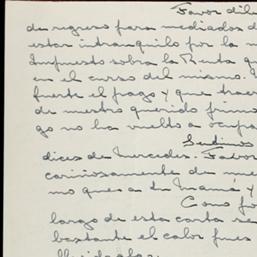 Favor dili
de regreso para mediados d
estar intranquilo por la n
Impuesto sobra la Renta qu
en el curso del mismo.
fuerte el pago y que traer
de nuestro querido primo
go no ha vuelto a ocupa
Sentimos
dices de Mercedes. Favor
cariñosamente de nue
mo ques a tu mamá y
Como fo
largo de esta carta se
bastante el calor pues